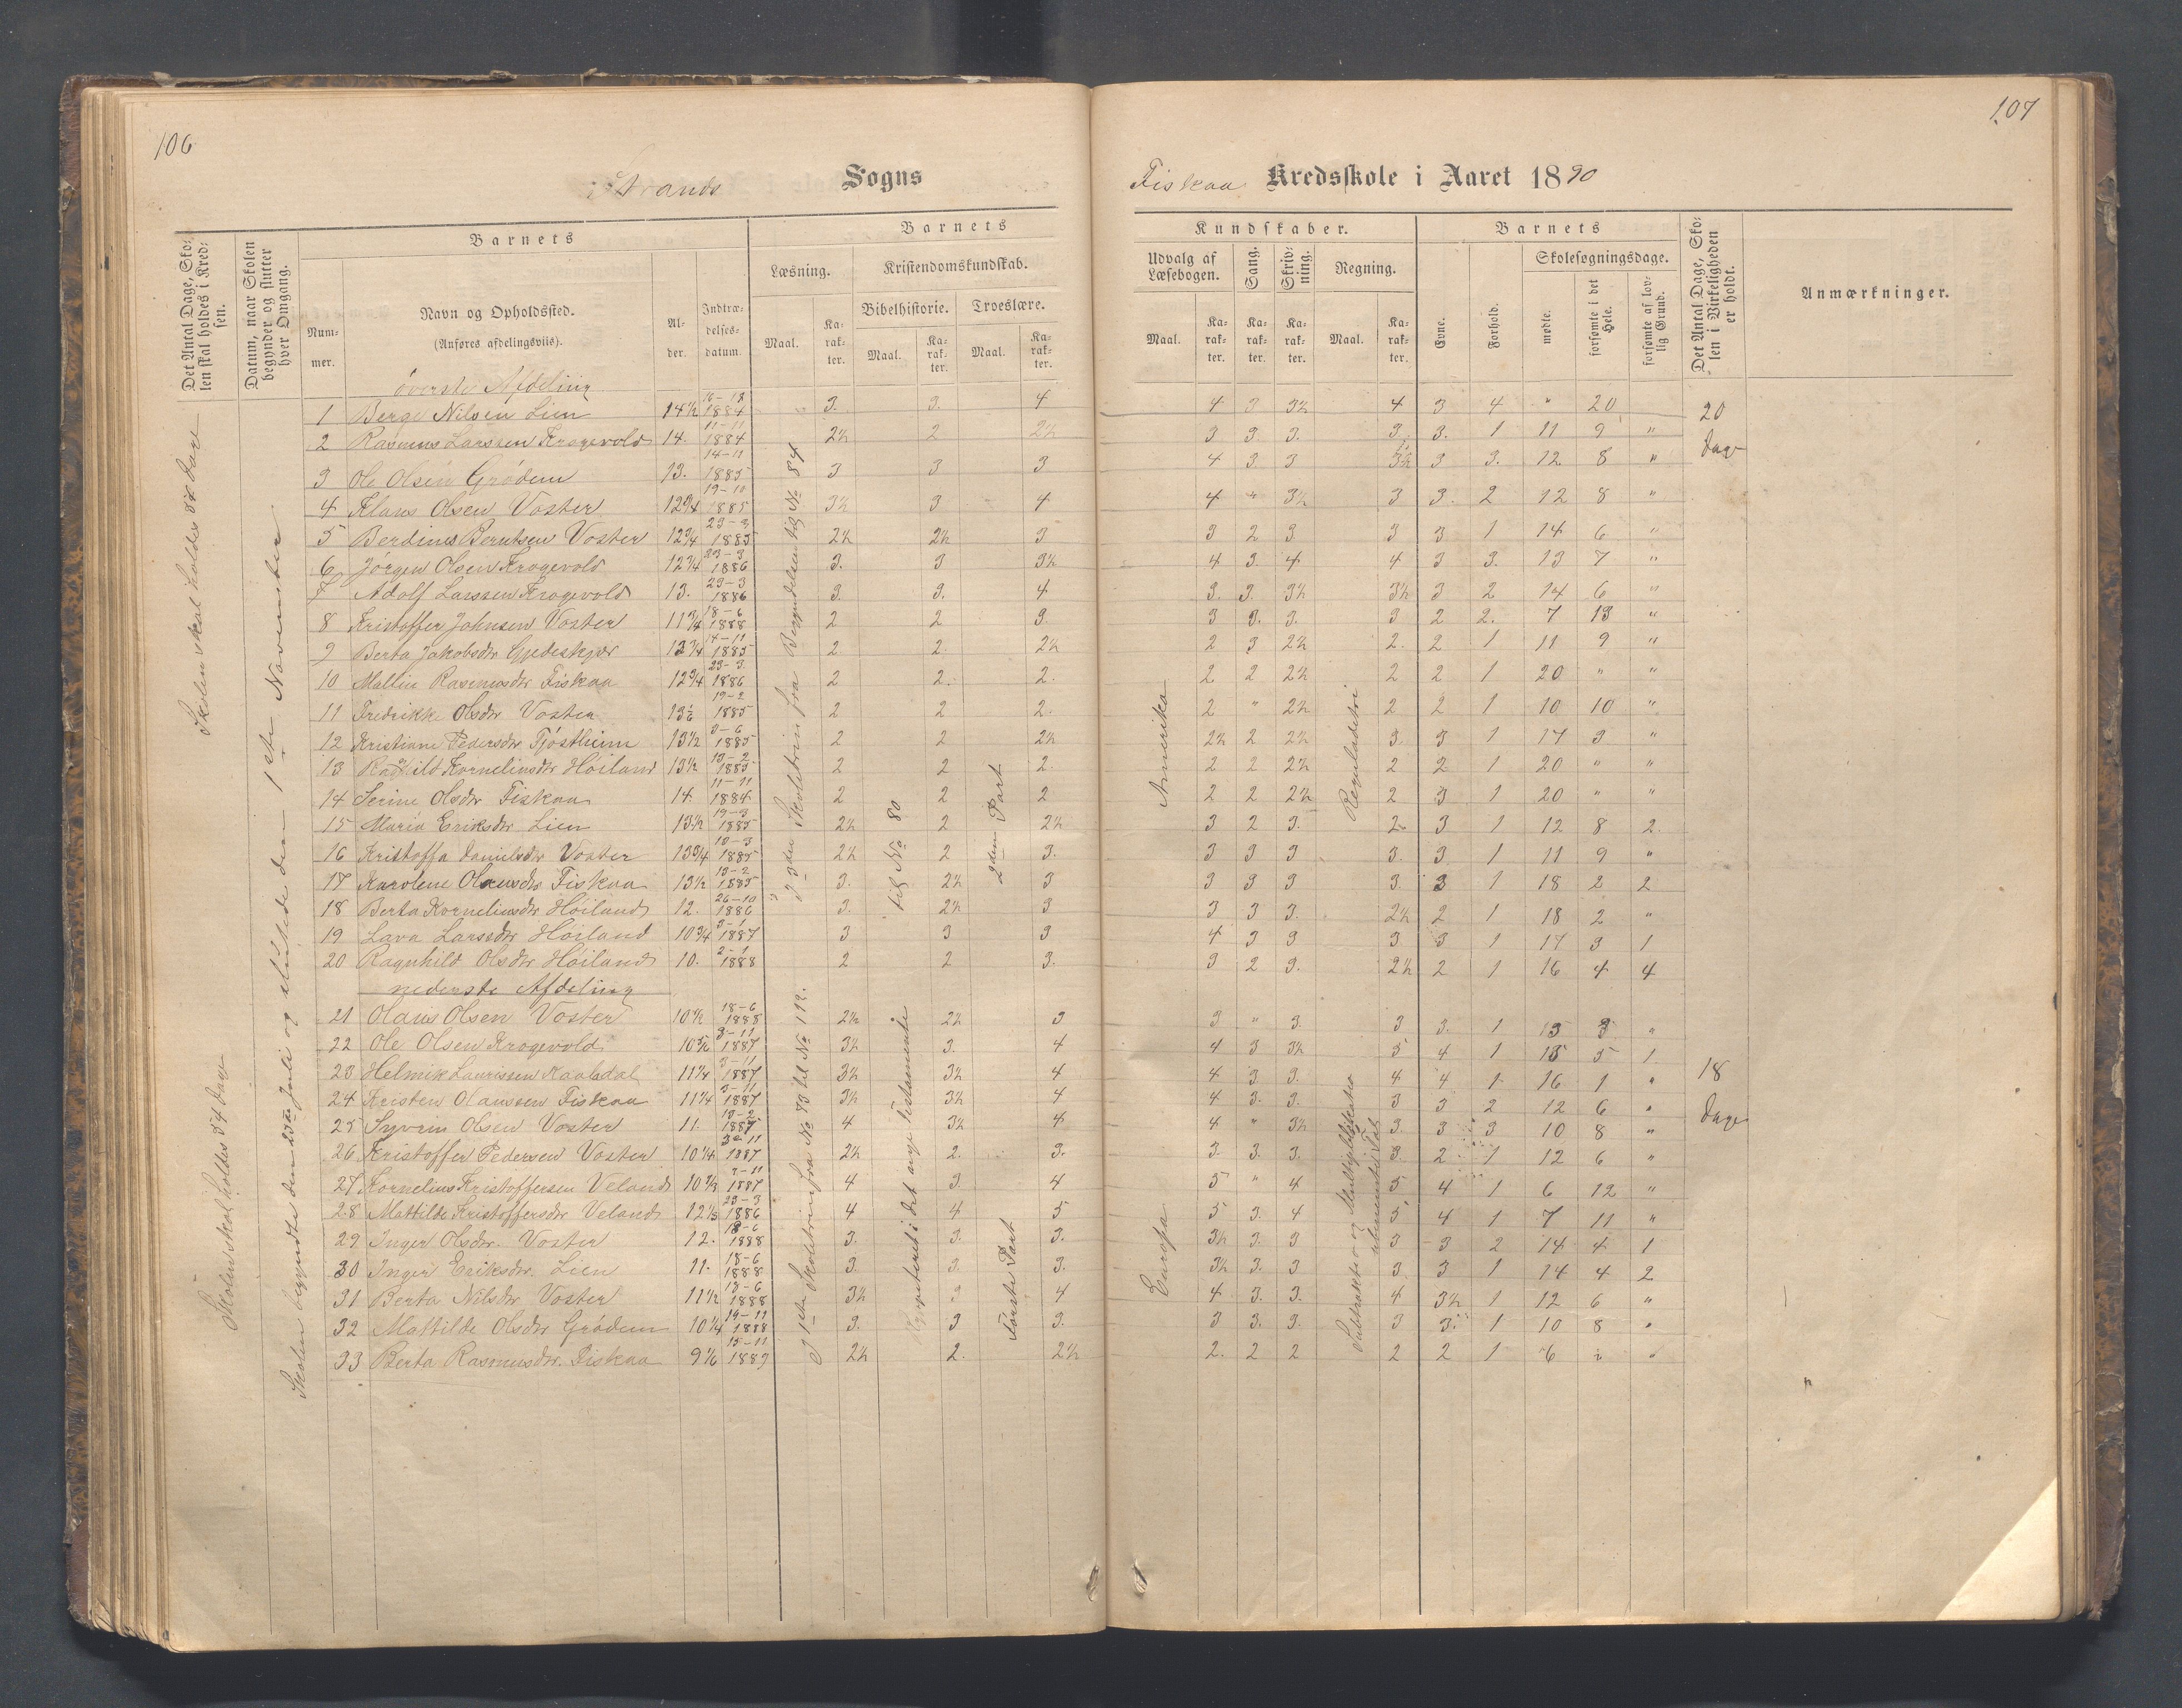 106
Strands Sogns
Det Antal Dage, Skolen skal holdes i Kredsen.
Datum, naar Skolen begynder og slutter hver Omgang.
Barnets
Nummer.
Navn og Opholdssted.
(Anføres afdelingsviis).
Alder.
Indtrædelsesdatum.
Barnets
Læsning.
Kristendomskundskab.
Bibelhistorie.
Troeslære.
Maal.
Karakter.
Maal.
Karakter.
Maal.
Karakter.
Skolen skal holdes 54 Dage
Skolen skal holdes 54 Dage
Skolen begyndte den 23de Juli og sluttede den 1ste November
øverste Afdeling
1 Berge Nilsen Lien 14½ 1884 3. 3. 4
2 Rasmus Larssen Krogevold 14. 11-11 1884 2½ 2 2½
3 Ole Olsen Grødem 13. 14-11 1885 3 3 3
4 Klaus Olsen Voster 12¾ 19-10 1885 3½ 3 4
5 Berdines Berntsen Voster 12¾ 23-3 1885 2½ 2½ 3
6 Jørgen Olsen Krogevold 12¼ 23-3 1886 3. 3 3½
7 Adolf Larssen Krogevold 13. 23-3 1886 3. 3. 4
8 Kristoffer Johnsen Voster 11¾ 18-6 1888 2 2 3.
9 Berta Jakobsdtr Gjedeskjær 13¼ 14-11 1885 2. 2. 2½
10 Mallin Rasmusdtr Fiskaa 12¾ 23-3. 1886 2 2. 2.
11 Fredrikke Olsdtr Voster 19-2 1885 2 2 2.
12 Kristiane Pedersdtr Tjøstheim 13½ 3-6 1885 2 2 2½
13 Ragnhild Kornelinsdtr Høiland 13½ 13-2 1885 2 2 2.
14 Serine Olsdtr Fiskaa 14. 11-11 1884 2 2 2
15 Maria Eriksdtr Lien 13½ 19-3 1885 2½ 2 2½
16 Kristoffa Danielsdtr Voster 13¾ 10-3 1885 2½ 2 3.
17 Karolene Olausdtr Fiskaa 13½ 13-2 1885 3. 2½ 3
18 Berta Kornelinsdtr Høiland 12. 26-10 1886 3. 2½ 3
19 Lava Larssdtr Høiland 10¾ 3-1 1887 3 3 3
20 Ragnhild Olsdtr Høiland 10. 2-1 1888 2 2 3.
nederste Afdeling
21 Olaus Olsen Voster 10½ 18-6 1888 2½ 2½ 3
22 Ole Olsen Krogevold 3-11 1887 3½ 3. 4
23 Helmik Laurissen Kaalsdal 11¼ 3-11 1887 3½ 3½ 4
24 Kristen Olaussen Fiskaa 11¼ 3-11 1887 3½ 3½ 4
25 Syvrin Olsen Voster 11. 13-2 1887 4 3½ 4
26 Kristoffer Pedersen Voster 10¼ 3-11 1887 2½ 2. 3.
27 Kornelius Kristoffersen Veland 3-11 1887 4 3 4
28 Mattilde Kristoffersdtr Veland 12⅓ 23-3 1886 4 4 5
29 Inger Olsdtr. Voster 12. 18-6 1888 3. 3. 3.
30 Inger Eriksdtr. Lien 11. 18-6 1888 3. 3. 3.
31 Berta Nilsdtr Voster 11½ 18-6 1888 3½ 3 4
32 Mattilde Olsdtr Grødem 10¼ 14-11 1888 3. 3 3.
33 Berta Rasmusdtr. Fiskaa 9⅙ 15-11 1889 2½ 2. 2½
I 3die Skoletrin fra Begyndelsen til No 84
til No 80
2den Part
I 1ste Skoletrin fra No 73 til No 112.
i det nye Testamente
Første Part
107
Fiskaa Kredsskole i Aaret 1890
Kundskaber.
Udvalg af Læsebogen.
Sang.
Skrivning.
Regning.
Maal.
Karakter.
Karakter.
Karakter.
Maal.
Karakter.
Barnets
Evne.
Forhold.
Skolesøgningsdage.
mødte.
forsømte i det Hele.
forsømte af lovlig Grund.
Det Antal Dage, Skolen i Virkeligheden er holdt.
Anmærkninger.
4 3 3½ 4 3 4 " 20
3 3 3. 3. 3. 1 11 9 "
4 3. 3 3½ 3 3. 12 8 "
4 " 3½ 3 3. 2 12 8 "
3 2 3. 3 3 1 14 6 "
4 3. 4 4 3 3. 13 7 "
3. 3. 3½ 3½ 3 2 14 6 "
3 3. 3. 3 2 2. 7 13 "
2 3 2½ 2. 2 1 11 9 "
2 2 2½ 2 2 1 20 " "
2 " 2½ 2 2 1 10 10 "
2½ 2 2½ 3. 3 1 17 3 "
2 2 2½ 2 2 1 20 " "
2 2 2½ 2 3 1 20 " "
3 2 3. 2 3 1 12 8 2.
3 3 3 3. 3 1 11 9 "
3 3 3 3. 3 1 18 2 2
3 3 3. 2½ 2 1 18 2 "
4 3 3 3 3 1 17 3 1
3 2 3. 2½ 2 1 16 4 4
3 " 3. 3 3. 1 15 3 "
4 3 3½ 5 4 1 13 5 1
4 3. 3. 4 4 1 16 1 "
4 3. 3. 3 3 2 12 6 "
4 " 3½ 3. 3 3 10 8 "
3. 3. 3. 3. 2 1 12 6 "
5 " 4 5 4 1 6 12 "
5 3. 4 5 4 1 7 11 "
3½ 3. 3 3 3 2 14 4 1
3½ 3. 3 3. 3 1 14 4 2
4 3. 3. 4 3½ 1 12 6 "
3 3. 3. 3 3. 1 10 8 "
2. 2 2 2 2 1 6
Amerika
Reguladetri
Europa
Subtraktion og Multiplikation
ubenævnte Tal
20
Dage
18
Dage